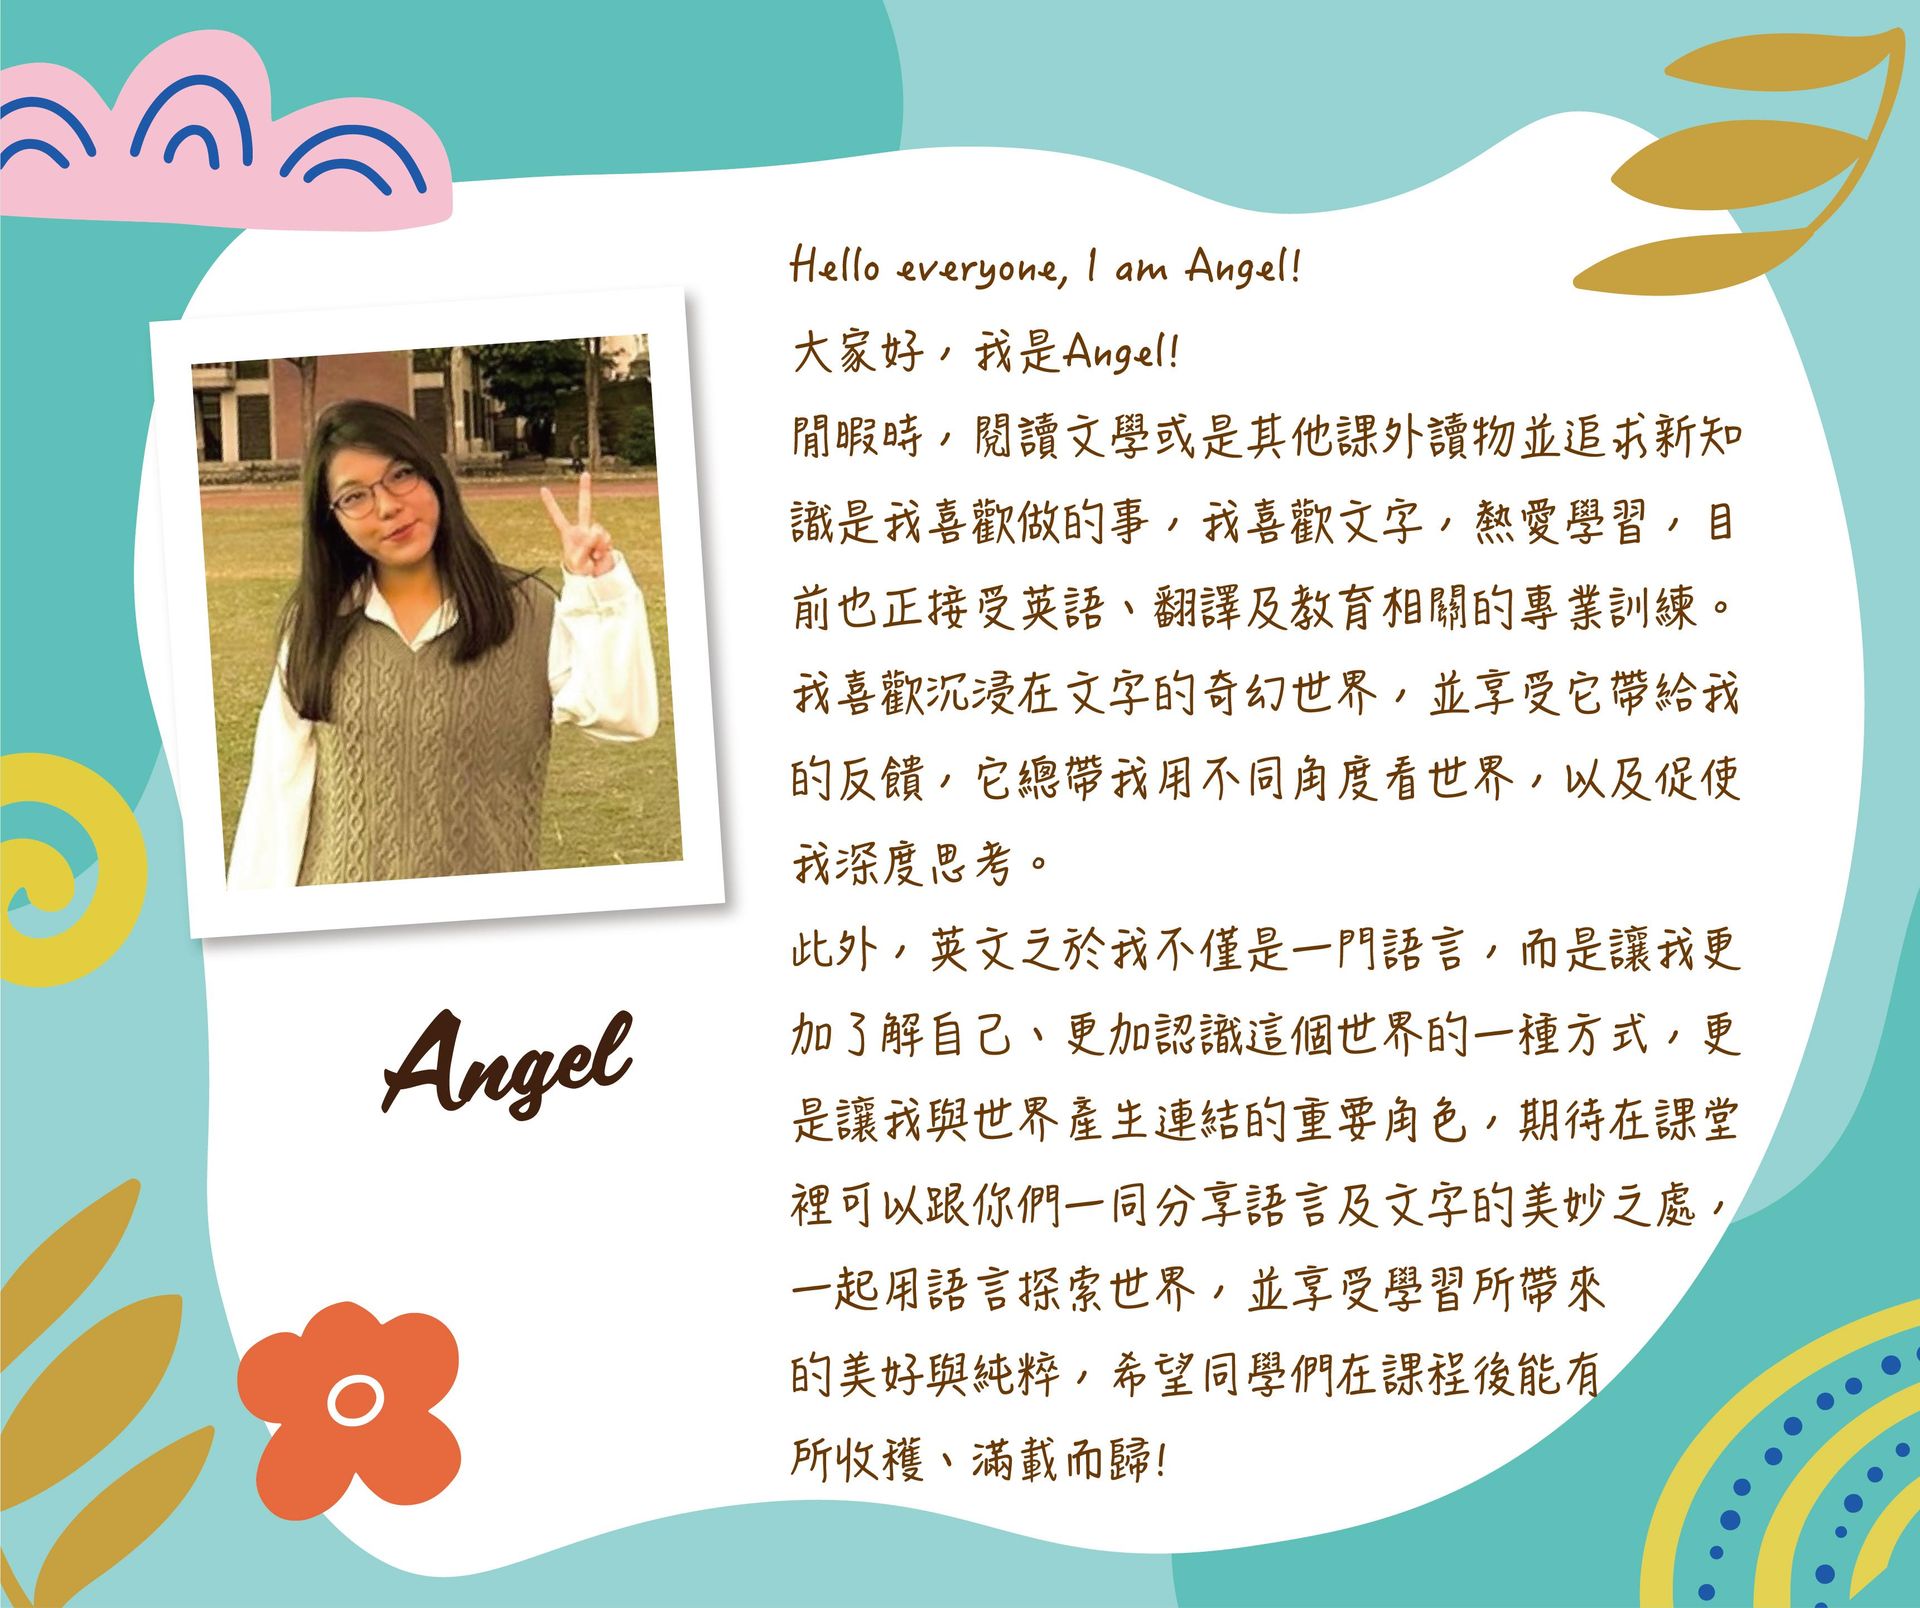 Hello everyone, I am Angel!
大家好，我是Angel!
閒暇時，閱讀文學或是其他課外讀物並追求新知
識是我喜歡做的事，我喜歡文字，熱愛學習，目
前也正接受英語、翻譯及教育相關的專業訓練。
我喜歡沉浸在文字的奇幻世界，並享受它帶給我
的反饋，它總帶我用不同角度看世界，以及促使
我深度思考。
此外，英文之於我不僅是一門語言，而是讓我更
加了解自己、更加認識這個世界的一種方式，更
是讓我與世界產生連結的重要角色，期待在課堂
裡可以跟你們一同分享語言及文字的美妙之處，
一起用語言探索世界，並享受學習所帶來
的美好與純粹，希望同學們在課程後能有
所收穫、滿載而歸!
Angel